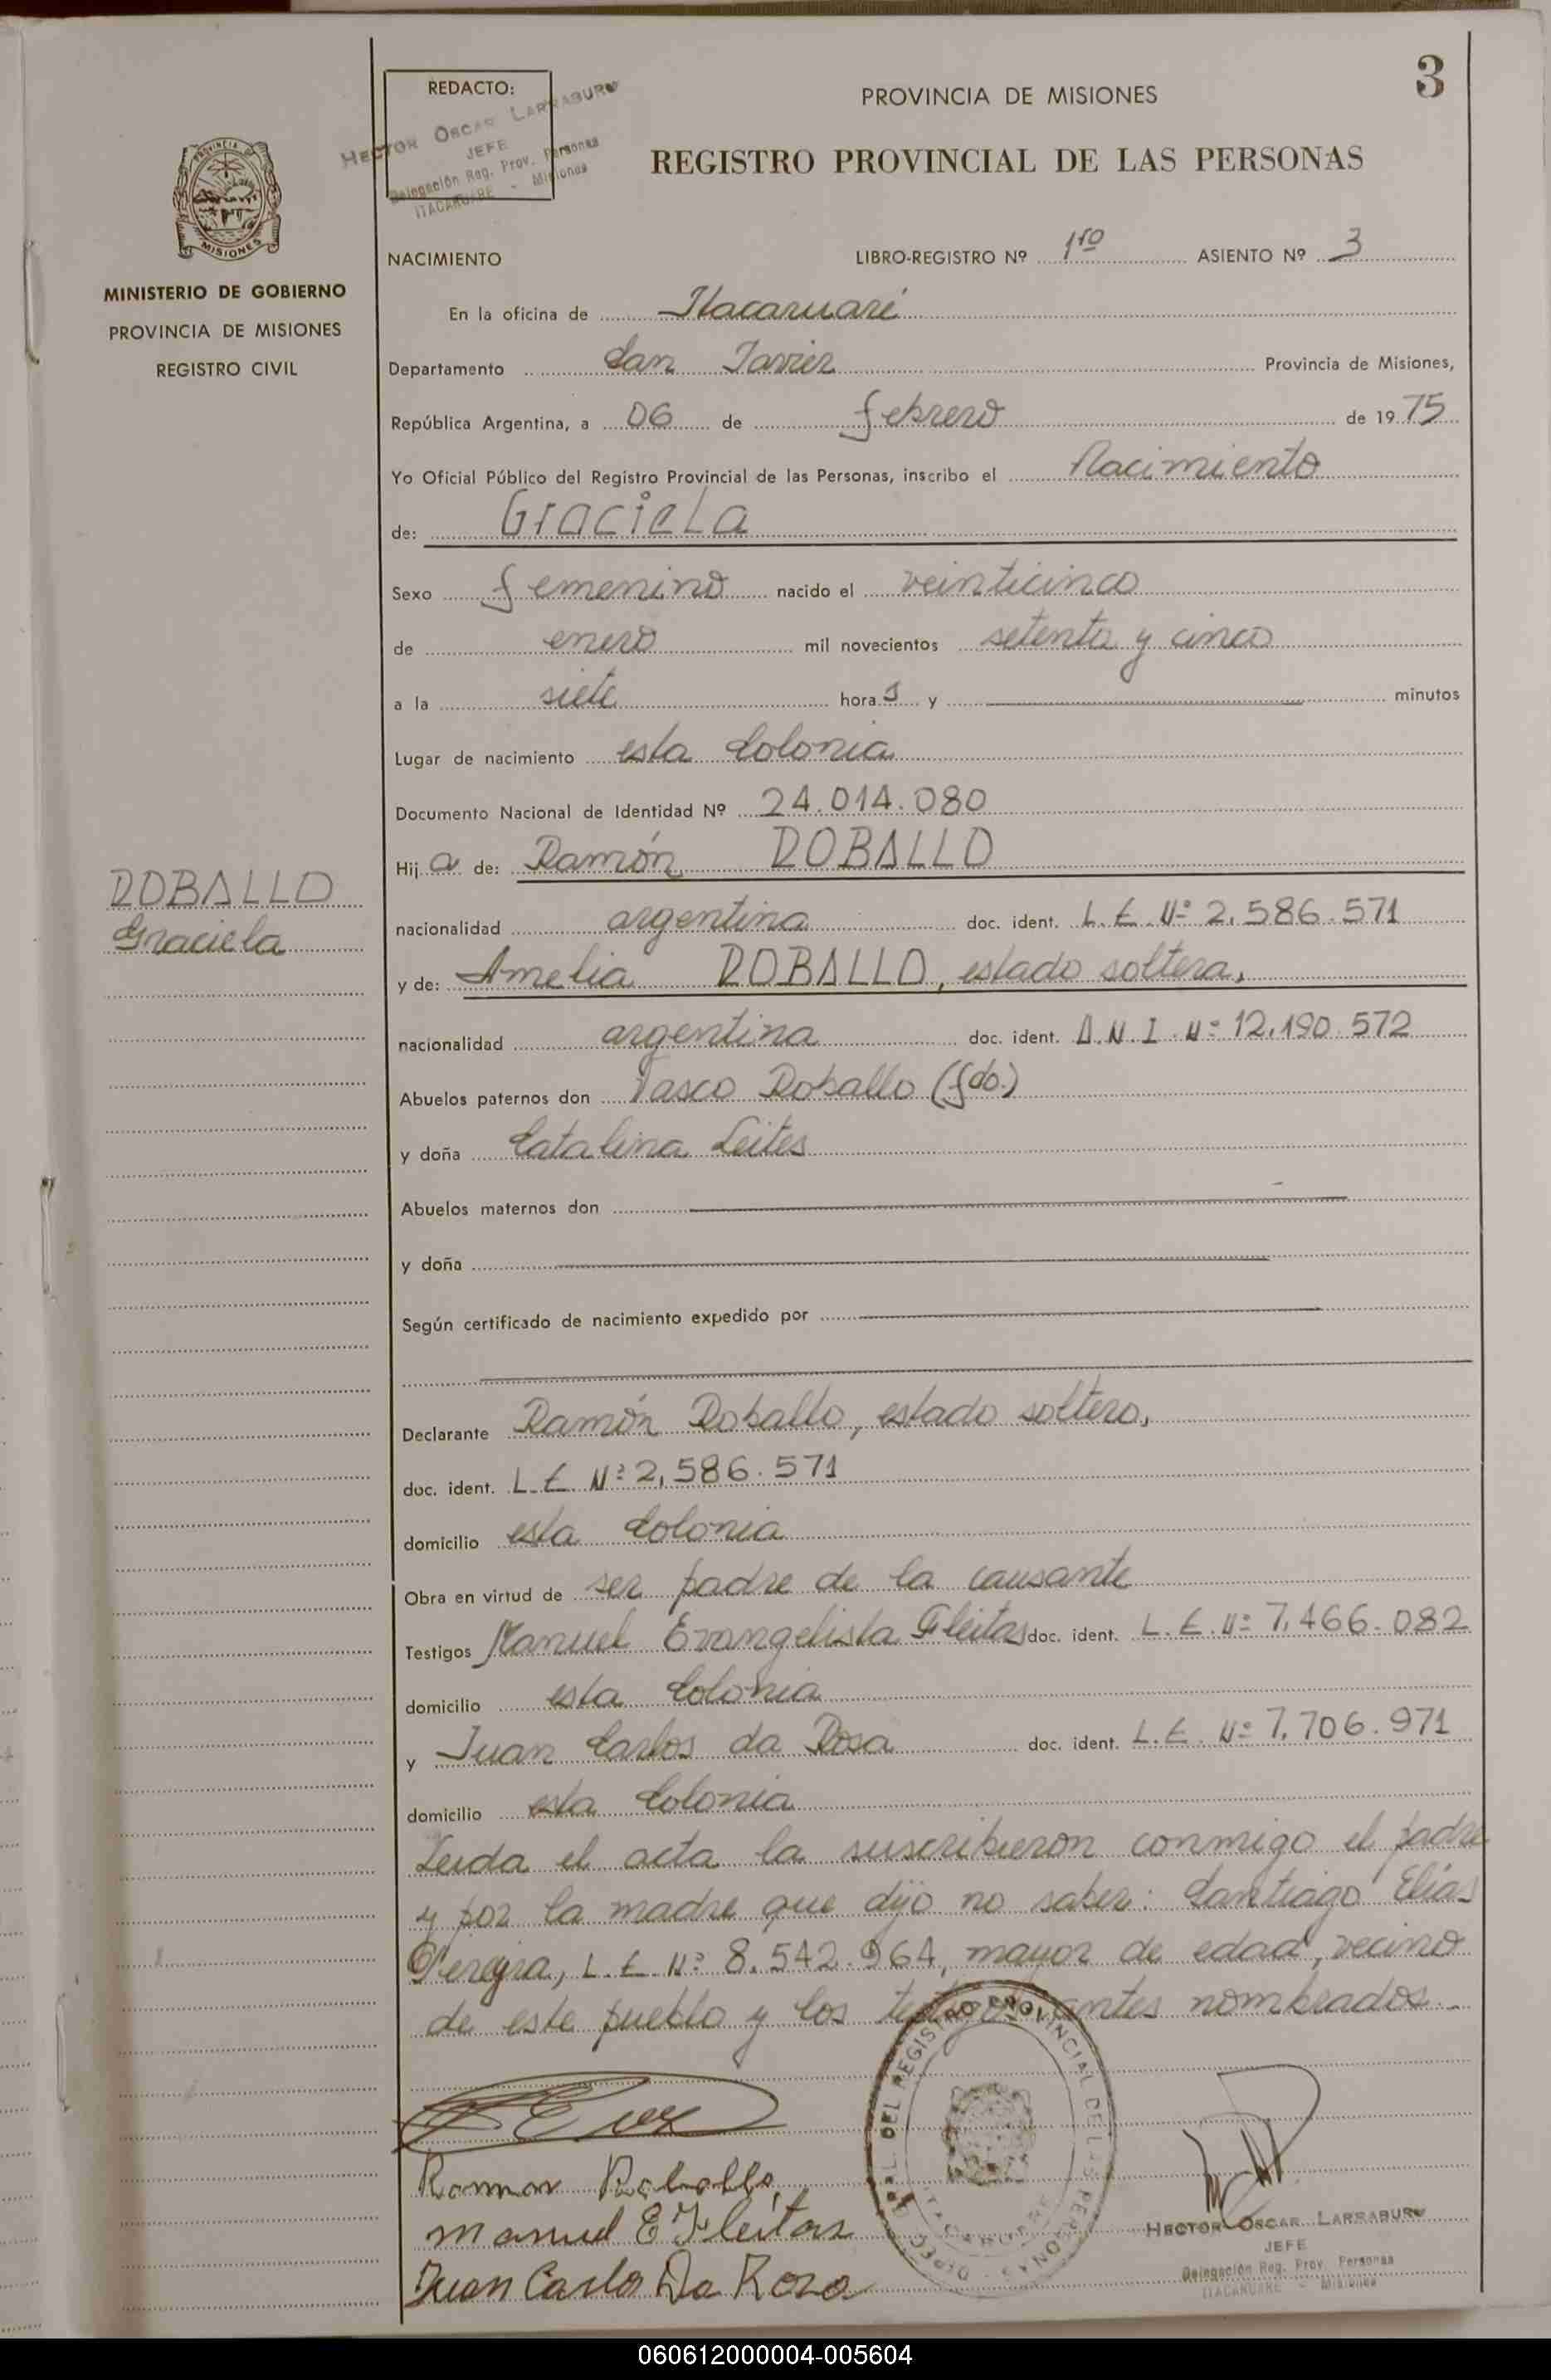 3
REDACTO:
HECTOR OSCAR LARRABURU
JEFE
Delegación Reg. Prov. Personas
ITACARUARE - Misiones
PROVINCIA DE MISIONES
REGISTRO PROVINCIAL DE LAS PERSONAS
PROVINCIA DE
MISIONES
MINISTERIO DE GOBIERNO
PROVINCIA DE MISIONES
REGISTRO CIVIL
NACIMIENTO LIBRO-REGISTRO Nº 1ro ASIENTO Nº 3
En la oficina de Itacaruaré
Departamento San Javier Provincia de Misiones,
República Argentina, a 06 de febrero de 1975
Yo Oficial Público del Registro Provincial de las Personas, inscribo el Nacimiento
de: GraciELa
Sexo femenino nacido el veinticinco
de enero mil novecientos setenta y cinco
a la siete horas y minutos
Lugar de nacimiento esta Colonia
Documento Nacional de Identidad Nº 24.014.080
Hija de: Ramón ROBALLO
ROBALLO
Graciela
nacionalidad argentina doc. ident. L.E. Nº 2.586.571
y de: Amelia ROBALLO, estado soltera,
nacionalidad argentina doc. ident. D.N.I. Nº 12.190.572
Abuelos paternos don Vasco Roballo (fdo.)
y doña Catalina Leites
Abuelos maternos don
y doña
Según certificado de nacimiento expedido por
Declarante Ramón Roballo, estado soltero,
doc. ident. L.E. Nº 2,586.571
domicilio esta Colonia
Obra en virtud de ser padre de la causante
Testigos Manuel Evangelista Fleitas doc. ident. L.E. Nº 7.466.082
domicilio esta Colonia
y Juan Carlos da Rosa doc. ident. L.E. Nº 7.706.971
domicilio esta Colonia
Leida el acta la suscribieron conmigo el padre
y por la madre que dijo no saber: Santiago Elías
Pereyra, L.E. Nº 8.542.964, mayor de edad, vecino
de este pueblo y los testigos antes nombrados.-
DIREC. GRAL. DEL REGISTRO PROVINCIAL DE LAS PERSONAS
ITACARUARE
Ramon Roballo
Manuel E Fleitas
Juan Carlos Da Rosa
HECTOR OSCAR LARRABURU
JEFE
Delegación Reg. Prov. Personas
ITACARUARE - Misiones
060612000004-005604